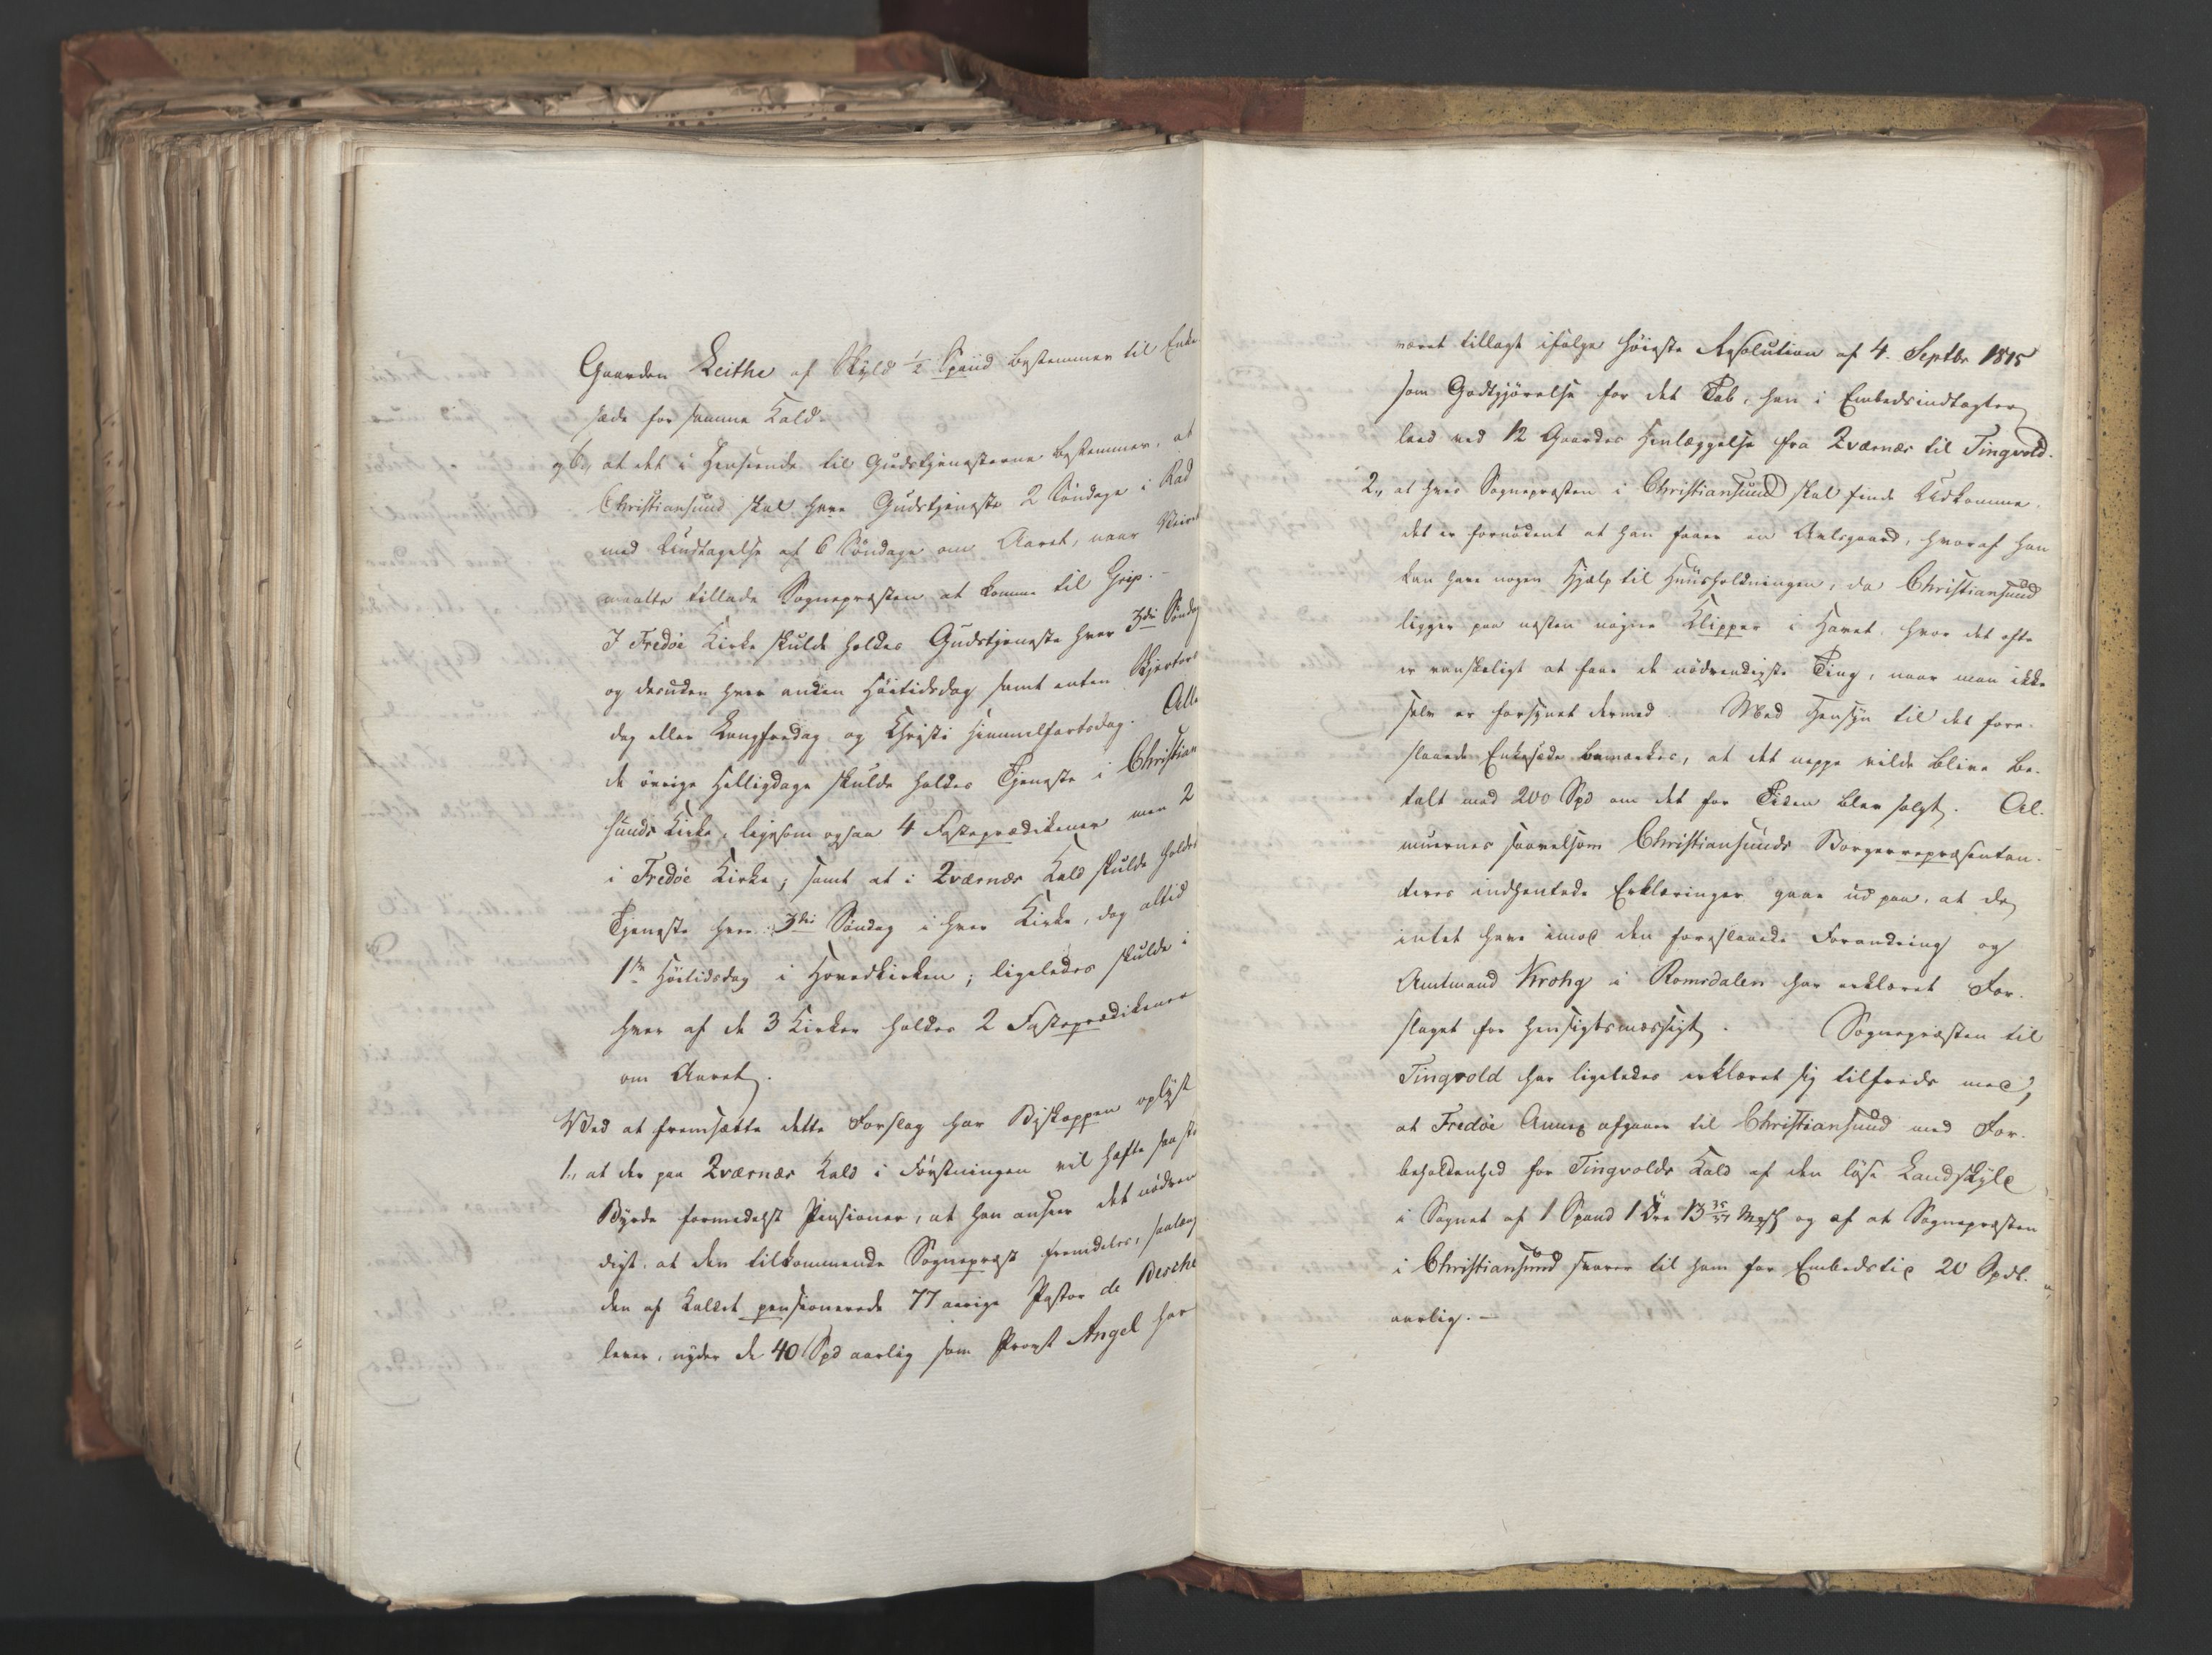 Gaarden Leithe af Skyld ½ Spand bestemmes til Enke
sæde for samme Kald.
og 6., at det i Henseende til Gudstjenesterne bestemmes, at
Christiansund skal have Gudstjeneste 2 Søndage i Rad
med Undtagelse af 6 Søndage om Aaret, naar Veiret
maatte tillade Sognepræsten at komme til Grip. –
I Fredøe Kirke skulde holdes Gudstjeneste hver 3die Søndag
og desuden hver anden Høitidsdag samt enten Skjertors
dag eller Langfredag og Christi Himmelfartsdag. Alle
de øvrige Helligdage skulde holdes Tjeneste i Christian
sunds Kirke, ligesom ogsaa 4 Fasteprædikener men 2
i Fredøe Kirke; samt at i Qværnæs Kald skulde holdes
Tjeneste hver 3die Søndag i hver Kirke, dog altid
1ste Høitidsdag i Hovedkirken; ligeledes skulde i
hver af de 3 Kirker holdes 2 Fasteprædikener
om Aaret.
Ved at fremsætte dette Forslag har Biskoppen oplyst
1., at der paa Qværnæs Kald i Førstningen vil hefte saa stor
Byrde formedelst Pensioner, at han anseer det nødven
digt, at den tilkommende Sognepræst fremdeles, saalænge
den af Kaldet pensionerede 77 aarige Pastor de Besche
lever, nyder de 40 Spd aarlig som Provst Angel har
været tillagt ifølge høieste Resolution af 4. Septbr 1815
som Godtgjørelse for det Tab, han i Embedsindtægter
leed ved 12 Gaardes Henlæggelse fra Qværnæs til Tingvold.
2., at hvis Sognepræsten i Christiansund skal finde Udkomme,
det er fornødent at han faaer en Avlsgaard, hvoraf han
kan have nogen Hjælp til Huusholdningen, da Christiansund
ligger paa næsten nøgne Klipper i Havet, hvor det ofte
er vanskeligt at faae de nødvendigste Ting, naar man ikke
selv er forsynet dermed. Med Hensyn til det fore-
slaaede Enkesæde bemærkes, at det neppe vilde blive be-
talt med 200 Spd om det for Tiden blev solgt. Al-
muernes saavelsom Christiansunds Borgerrepræsentan-
ters indhentede Erklæringer gaae ud paa, at de
intet have imod den foreslaaede Forandring og
Amtmand Krohg i Romsdalen har erklæret For-
slaget for hensigtsmæssigt. Sognepræsten til
Tingvold har ligeledes erklæret sig tilfreds med,
at Fredøe Annex afgaaer til Christiansund med For-
beholdenhed for Tingvolds Kald af den løse Landskyld
i Sognet af 1 Spand 1 Øre 13 Mark og af at Sognepræsten
i Christiansund svarer til ham for Embedstid 20 Spdl.
aarlig. –